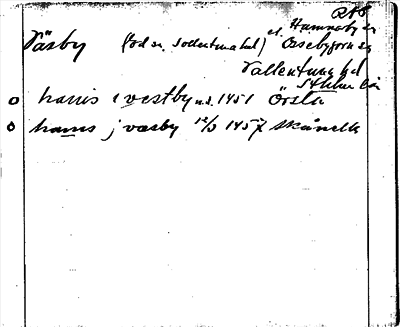 RAÄ
Väsby (od sn. Sollentuna hd) el. Hammarby sn
Össebygarn sn
Vallentuna hd
Sthlms län
o hanis i vestby u.d. 1451 Örsta
o hanns j væsby 12/3 1457 Skånella